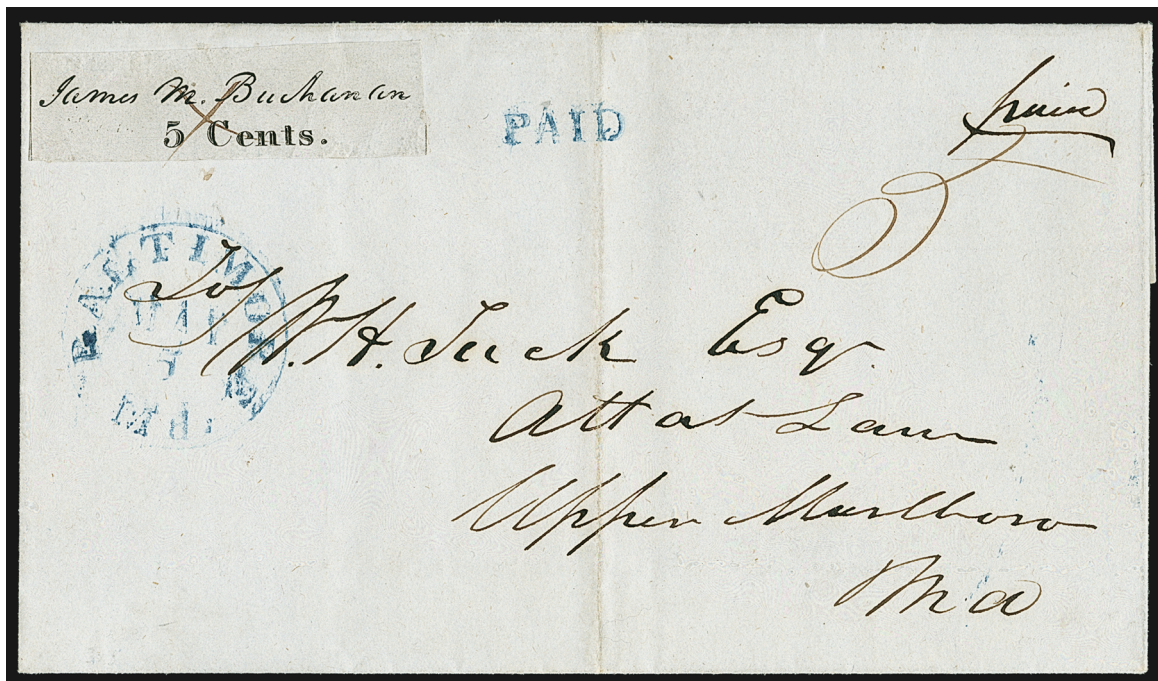 James M. Buchanan
5 Cents.
PAID
paid
BALTIMORE Md.
MAR
To/
W. H. Tuck Esqr.
Att at Law
Upper Marlboro
Md